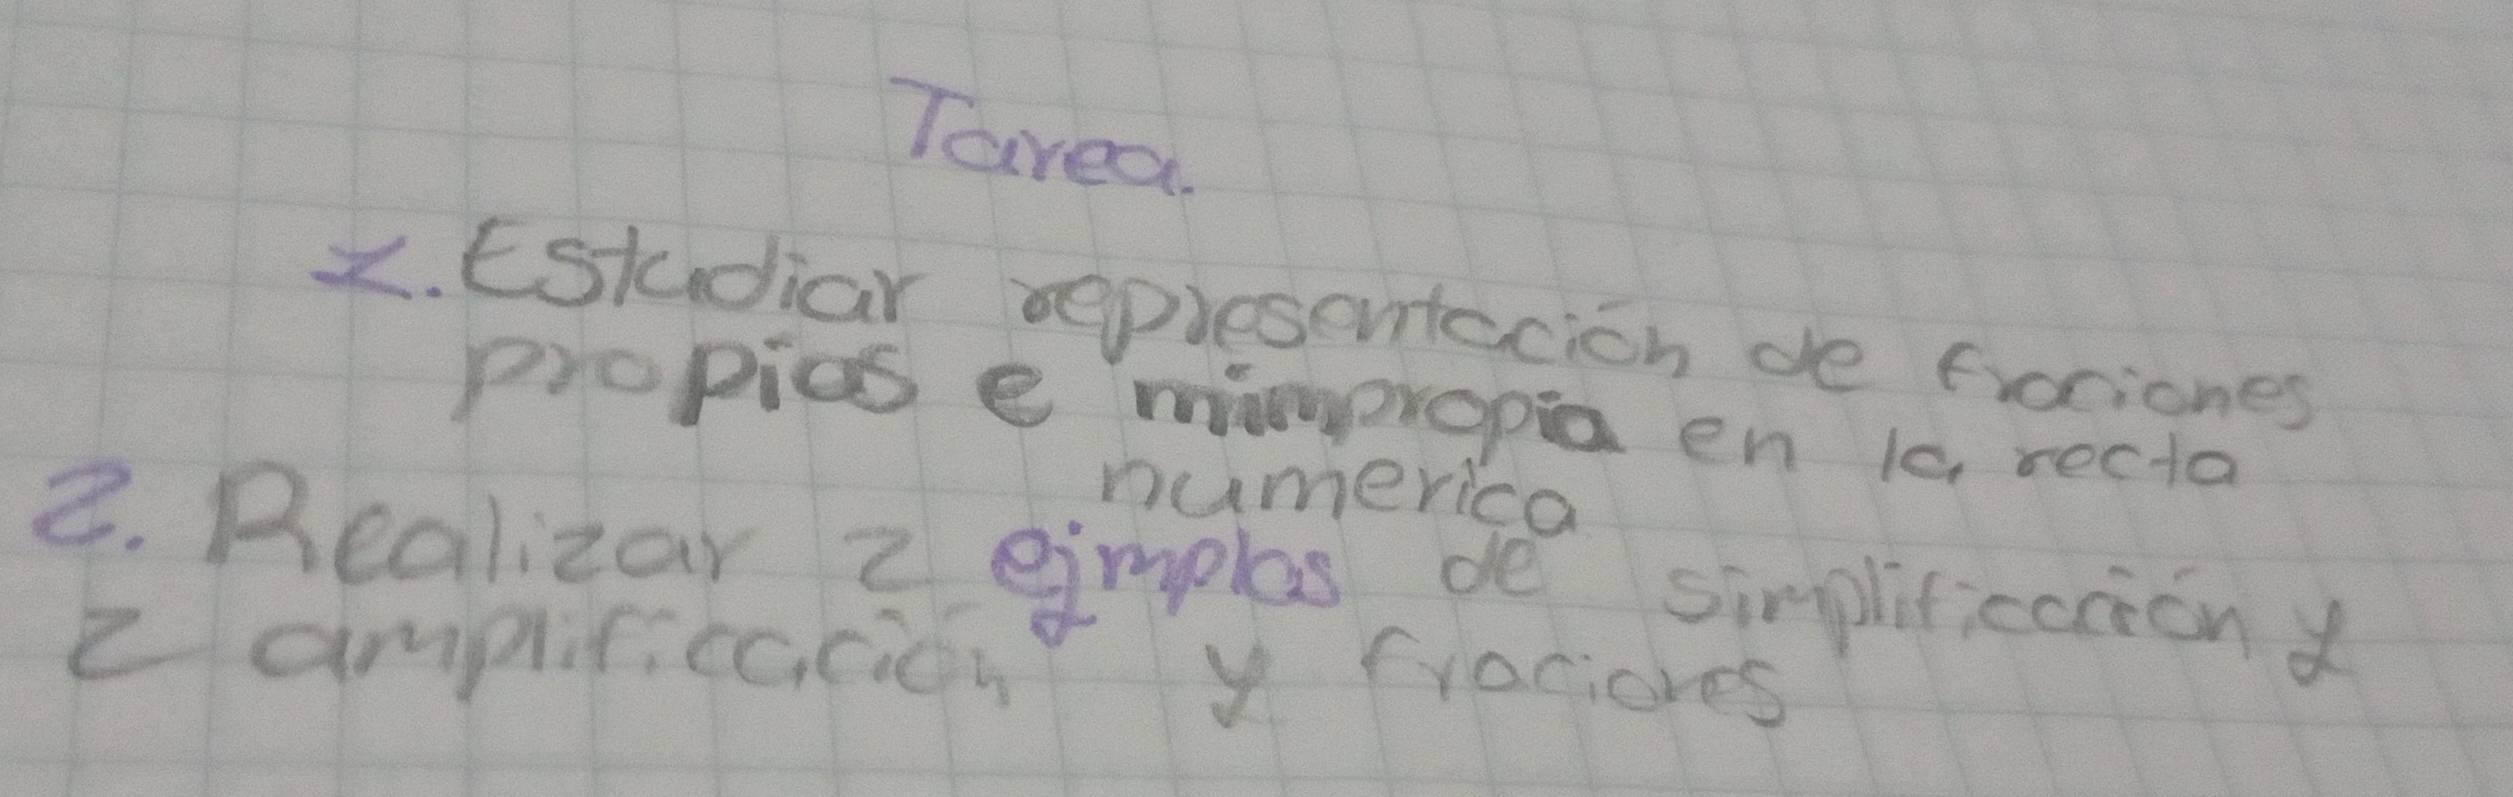 Tarea.
1. Estudiar representación de fraciones
propias e mimpropia en la recta
numerica
2. Realizar 2 ejmplos de simplificación y
2 amplificación y fraciones